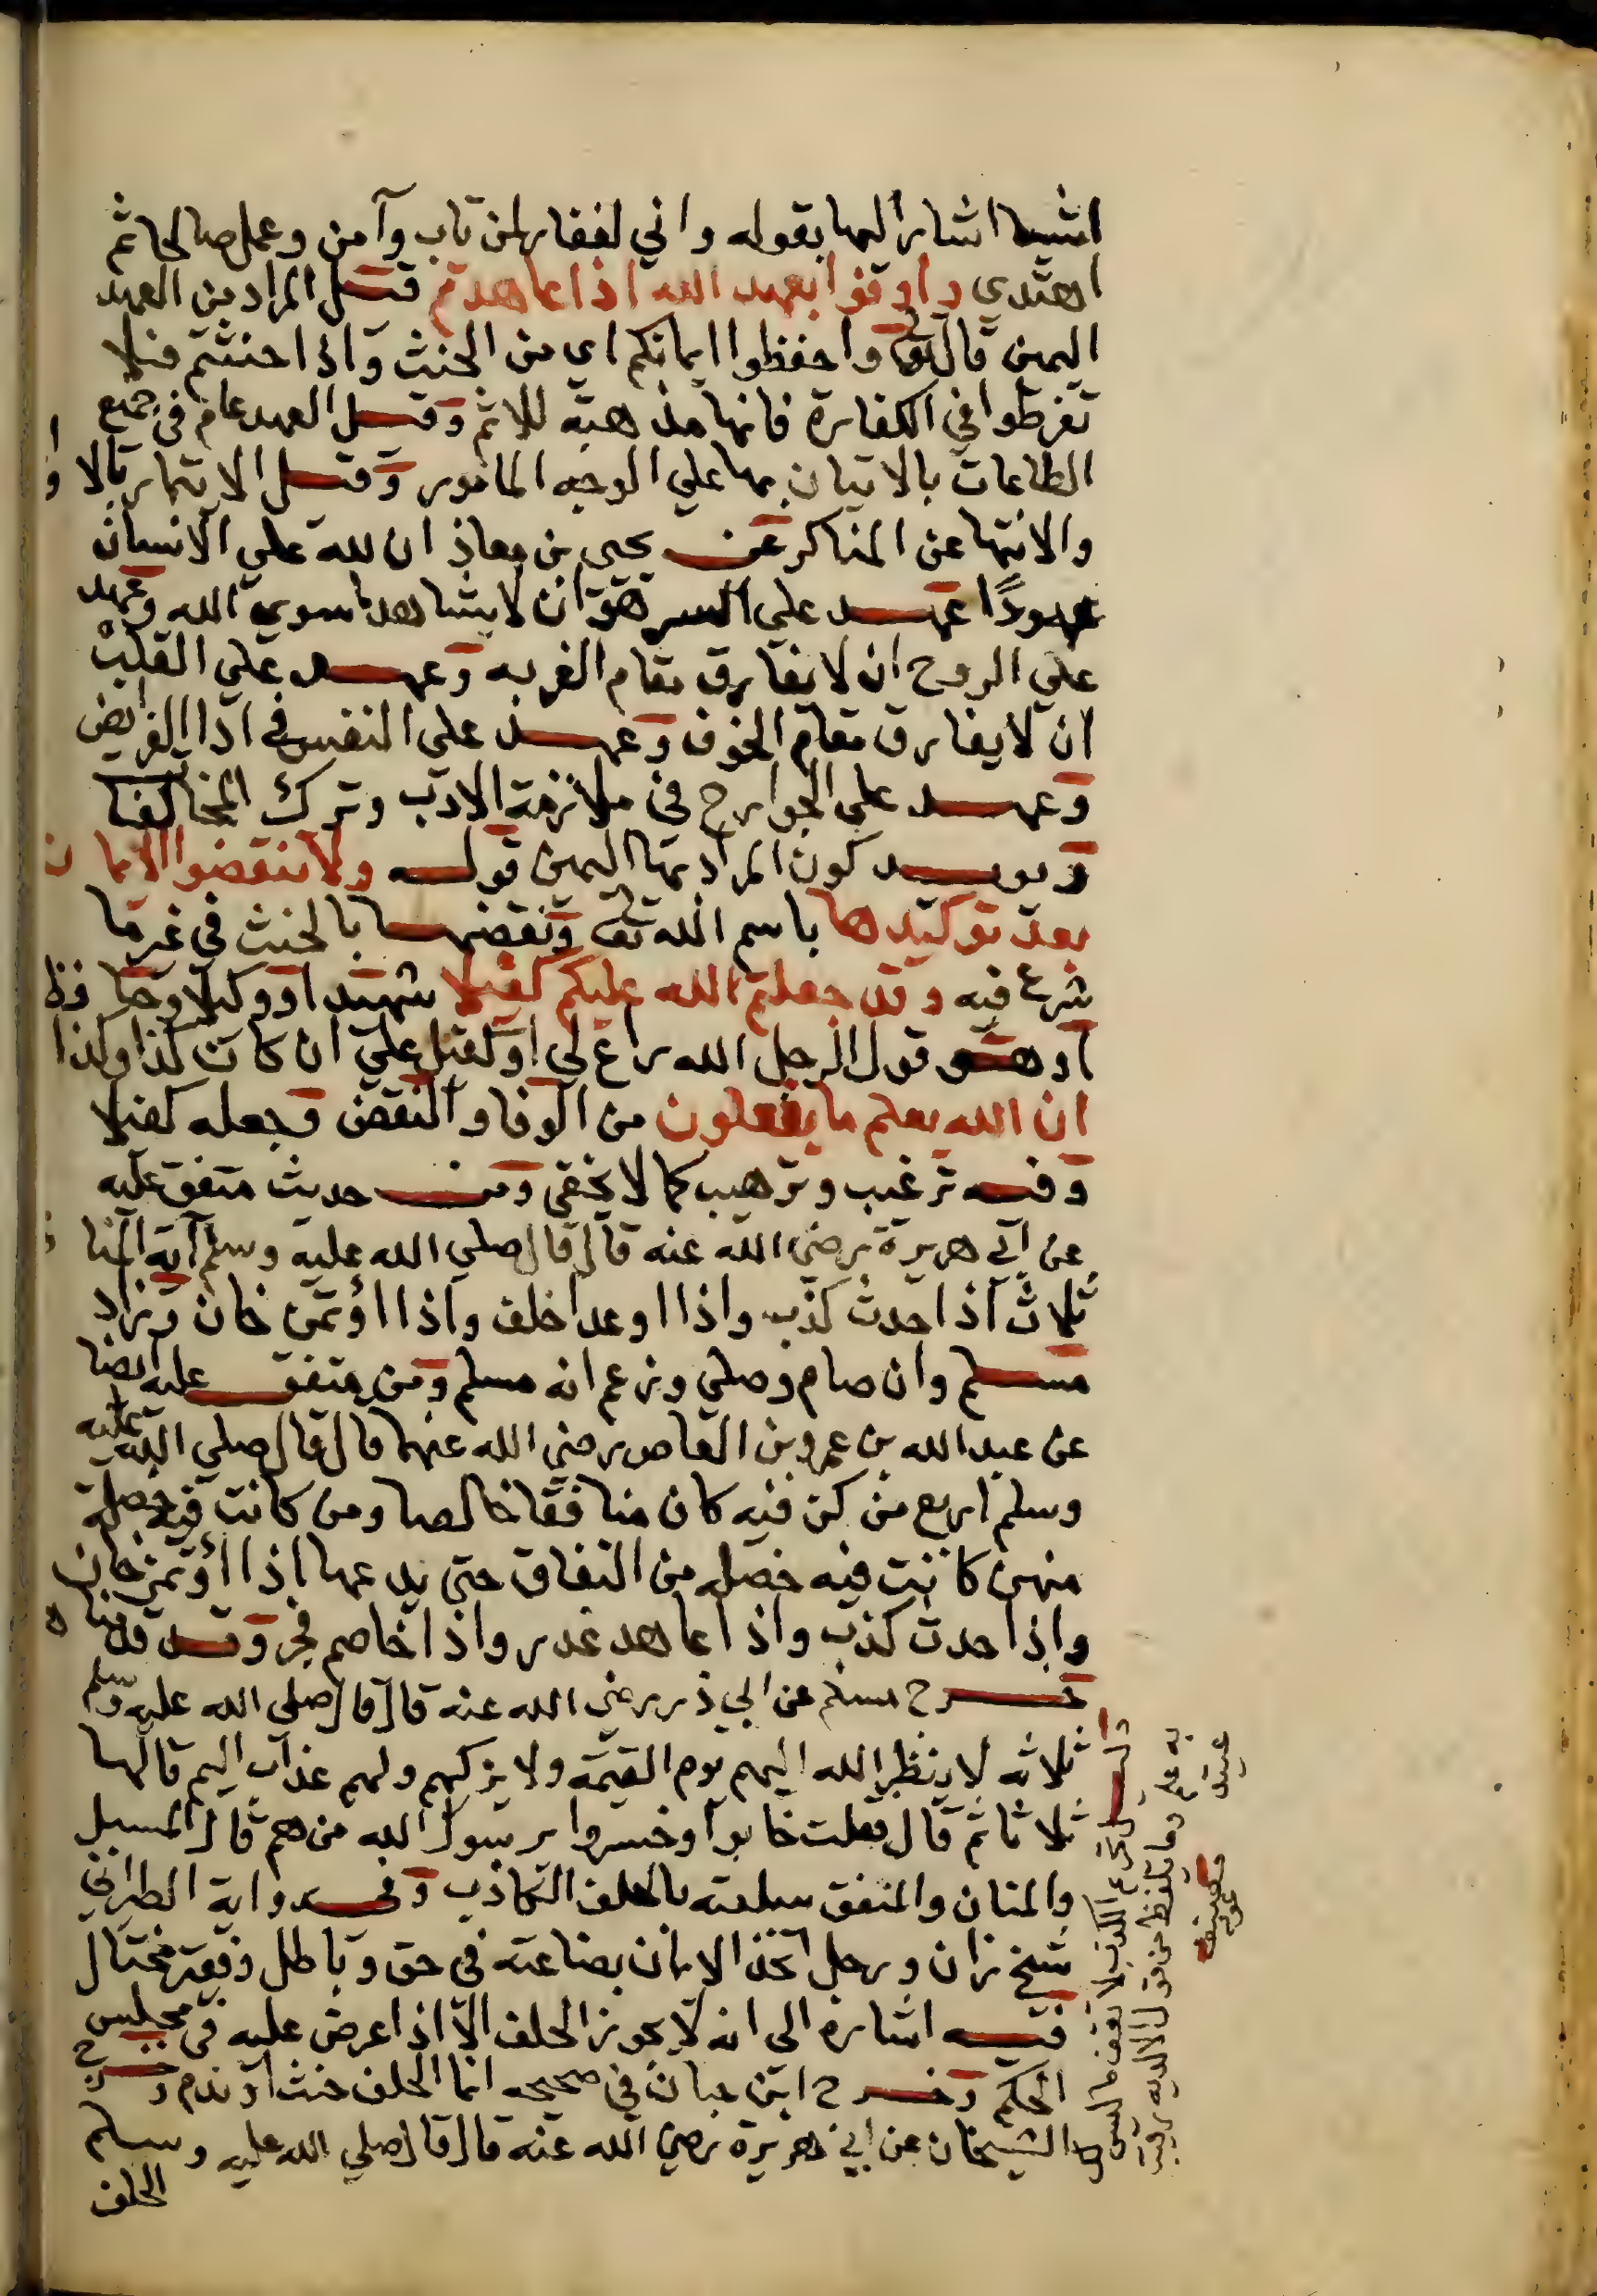 اشيا اشار اليها بقوله واني لغفار لمن تاب وآمن وعمل صالحا ثم
اهتدي واوفوا بعهد الله اذا عاهدتم قيل المراد من العهد
اليمين قال تع واحفظوا ايمانكم اي من الحنث واذا حنثتم فلا
تفرطوا في الكفارة فانها مذهبة للاثم وقيل العهد عام في جميع
الطاعات بالاتيان بها علي الوجه المامور وقيل الايتمار بالاوا
والانتها عن المناكر عن يحيى بن معاذ ان لله علي الانسان
عهودًا عهد علي السر هو ان لا يشاهد سوي الله وعهد
علي الروح ان لا يفارق مقام القربه وعهد علي القلب
ان لا يفارق مقام الخوف وعهد علي النفس في ادا الفرايض
وعهد علي الجوارح في ملازمة الادب وترك المخالفا
ويويد كون المراد بها اليمين قوله ولا تنقضوا الايمان
بعد توكيدها باسم الله تع ونقضها بالحنث في غير ما
شرع فيه وقد جعلتم الله عليكم كفيلا شهيدا ووكيلا وحافظا
او هو قول الرجل الله راع لي او كفيل علي ان كان كذا وكذا
ان الله يعلم ما يفعلون من الوفا والنقض وجعله كفيلا
وفيه ترغيب وترهيب كما لا يخفي ومن حديث متفق عليه
عن ابي هريرة رضي الله عنه قال قال صلي الله عليه وسلم آية المنا
ثلاث اذا حدث كذب واذا اوعد اخلف واذا اؤتمن خان وزاد
مسلم وان صام وصلي وزعم انه مسلم ومن متفق عليه ايضا
عن عبد الله بن عمرو بن العاص رضي الله عنهما قال قال صلي الله عليه
وسلم اربع من كن فيه كان منافقا خالصا ومن كانت فيه خصلة
منهن كانت فيه خصله من النفاق حتي يدعها اذا اؤتمن خان
واذا حدث كذب واذا عاهد غدر واذا خاصم فجر وقد قدمناه
خرج مسلم عن ابي ذر رضي الله عنه قال قال صلي الله عليه وسلم
ثلاثه لا ينظر الله اليهم يوم القيمة ولا يزكيهم ولهم عذاب اليم قالها
ثلاثا ثم قال فقلت خابوا وخسروا يرسول الله من هم قال المسبل
والمنان والمنفق سلعته بالحلف الكاذب وفي رواية الطبراني
شيخ زان ورجل اتخذ الايمان بضاعته في حق وباطل وفقير مختال
فيه اشارة الى انه لا يجوز الحلف الا اذا عرض عليه في مجلس
الحكم وخرج ابن حبان في صحيحه انما الحلف حنث او ندم وخرج
الشيخان عن ابي هريرة رضي الله عنه قال قال صلي الله عليه وسلم
الحلف
ولا تقف ما ليس لك
به علم وما يلفظ من قول الا لديه رقيب
عتيد